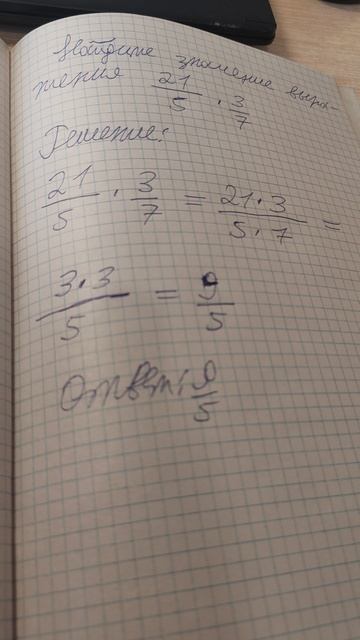 Найдите значение выра-
жения 21/5 · 3/7
Решение:
21/5 · 3/7 = 21·3/5·7 =
3·3/5 = 9/5
Ответ: 9/5